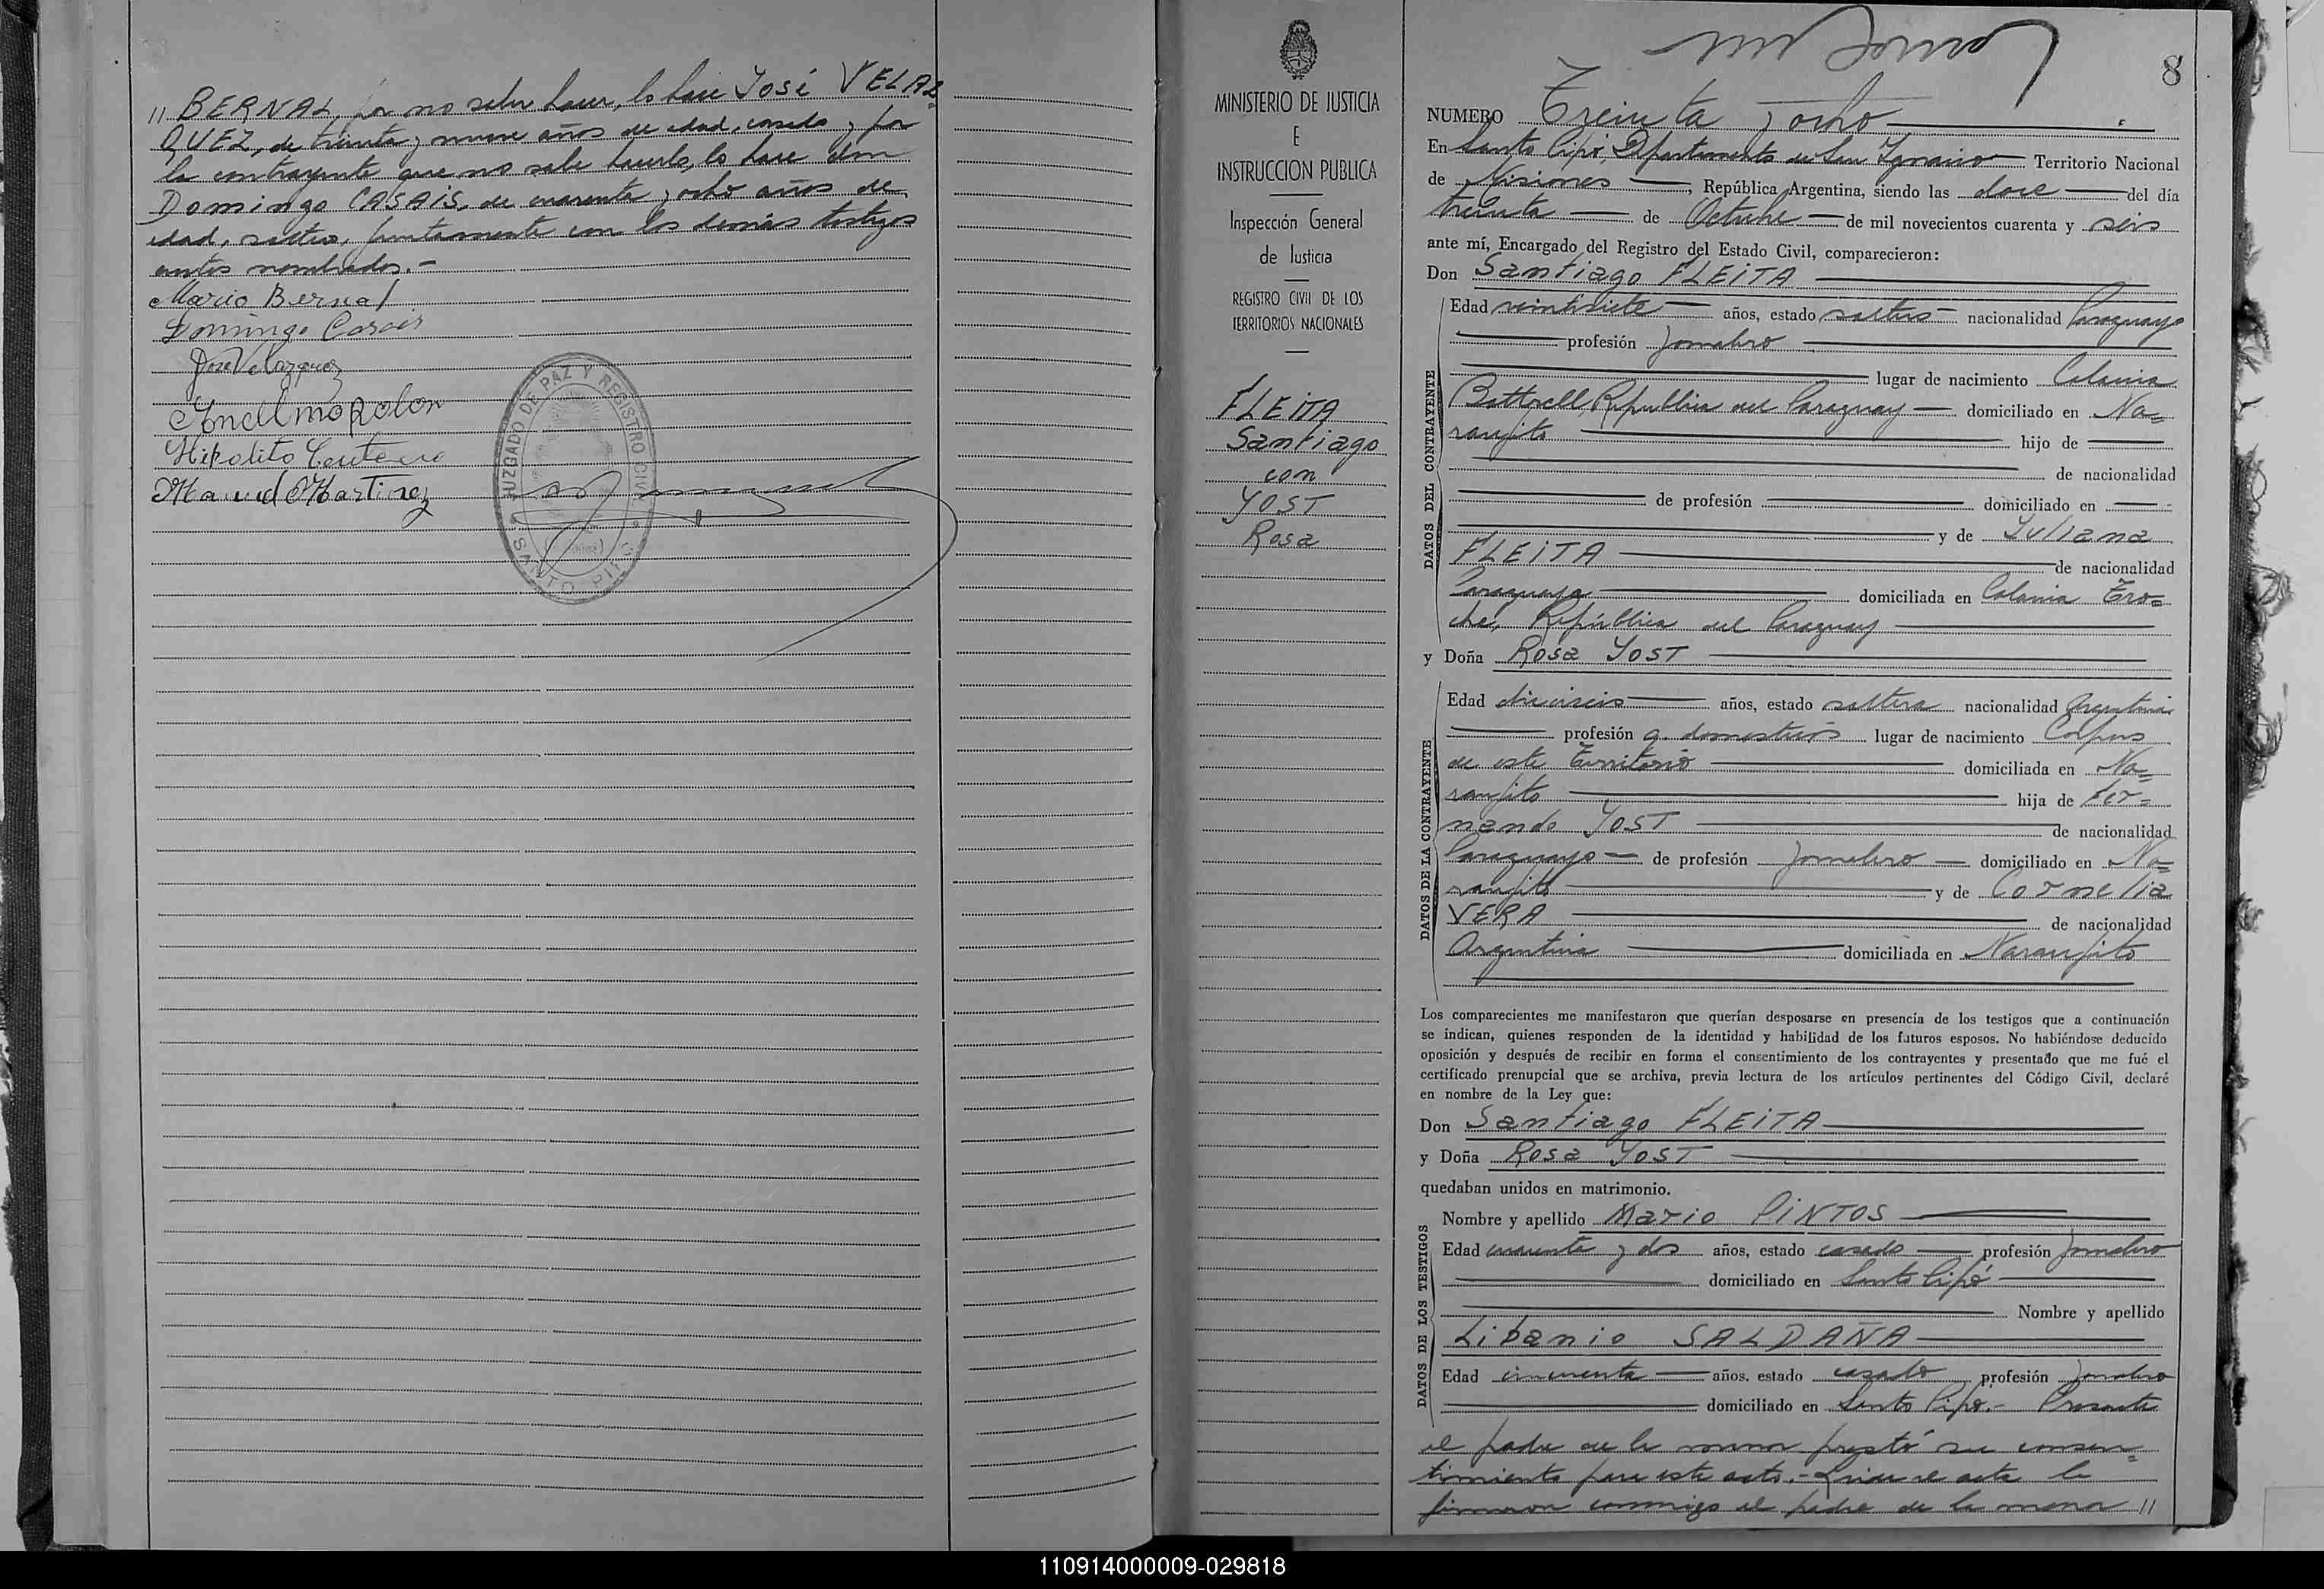 // BERNAL, por no saber hacer, lo hace José VELAZ=
QUEZ, de treinta y nueve años de edad, casado y por
la contrayente que no sabe hacerlo, lo hace don
Domingo CASAIS, de cuarenta y ocho años de
edad, soltero, juntamente con los demás testigos
antes nombrados.-
Mario Bernal
Domingo Casais
José Velazquez
Hipolito
Manuel Martinez
JUZGADO DE PAZ Y REGISTRO CIVIL
SANTO PIPÓ
MINISTERIO DE JUSTICIA
E
INSTRUCCION PUBLICA
Inspección General
de Justicia
REGISTRO CIVIL DE LOS
TERRITORIOS NACIONALES
FLEITA
Santiago
con
YOST
Rosa
8
NUMERO Treinta y ocho
En Santo Pipó, Departamento de San Ignacio Territorio Nacional
de Misiones, República Argentina, siendo las doce del día
treinta de Octubre de mil novecientos cuarenta y seis
ante mí, Encargado del Registro del Estado Civil, comparecieron:
Don Santiago FLEITA
DATOS DEL CONTRAYENTE
Edad veintisiete años, estado soltero nacionalidad Paraguayo
profesión jornalero
lugar de nacimiento Colonia
República del Paraguay domiciliado en Na=
ranjito hijo de
de nacionalidad
de profesión domiciliado en
y de Yuliana
FLEITA de nacionalidad
Paraguaya domiciliada en Colonia Tro=
che, República del Paraguay
y Doña Rosa YOST
DATOS DE LA CONTRAYENTE
Edad dieciseis años, estado soltera nacionalidad Argentina
profesión q. domesticos lugar de nacimiento Corpus
de este Territorio domiciliada en Na=
ranjito hija de Fer=
nando YOST de nacionalidad
Paraguayo de profesión jornalero domiciliado en Na=
ranjito y de Cornelia
VERA de nacionalidad
Argentina domiciliada en Naranjito
Los comparecientes me manifestaron que querían desposarse en presencia de los testigos que a continuación
se indican, quienes responden de la identidad y habilidad de los futuros esposos. No habiéndose deducido
oposición y después de recibir en forma el consentimiento de los contrayentes y presentado que me fué el
certificado prenupcial que se archiva, previa lectura de los artículos pertinentes del Código Civil, declaré
en nombre de la Ley que:
Don Santiago FLEITA
y Doña Rosa YOST
quedaban unidos en matrimonio.
DATOS DE LOS TESTIGOS
Nombre y apellido Mario PINTOS
Edad cuarenta y dos años, estado casado profesión jornalero
domiciliado en Santo Pipó
Nombre y apellido
Libanio SALDAÑA
Edad cincuenta años. estado casado profesión jornalero
domiciliado en Santo Pipó.- Presente
el padre de la menor prestó su consen=
timiento para este acto.- Leída el acta la
firmaron conmigo el padre de la menor //
110914000009-029818